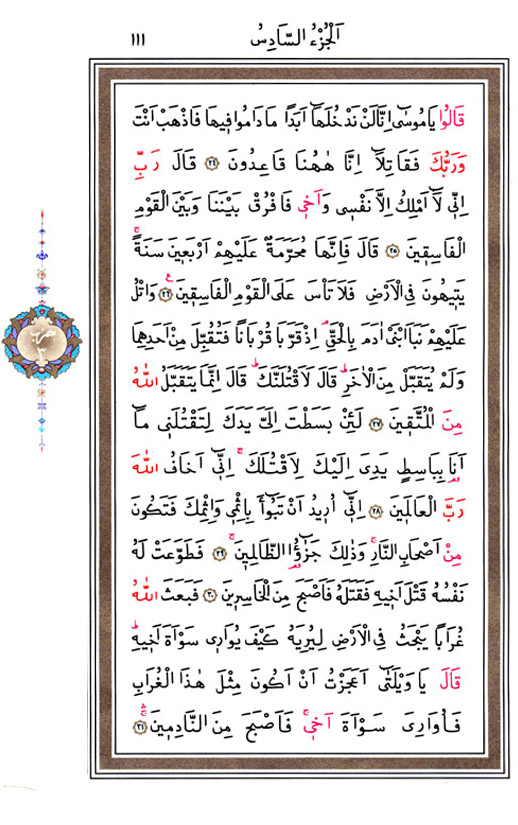 اَلْجُزْءُ السَّادِسُ ١١١
قَالُوا يَامُوسٰٓى اِنَّا لَنْ نَدْخُلَهَٓا اَبَدًا مَا دَامُوا فٖيهَا فَاذْهَبْ اَنْتَ
وَرَبُّكَ فَقَاتِلَٓا اِنَّا هٰهُنَا قَاعِدُونَ ﴿٢٤﴾ قَالَ رَبِّ
اِنّٖى لَٓا اَمْلِكُ اِلَّا نَفْسٖى وَاَخٖى فَافْرُقْ بَيْنَنَا وَبَيْنَ الْقَوْمِ
الْفَاسِقٖينَ ﴿٢٥﴾ قَالَ فَاِنَّهَا مُحَرَّمَةٌ عَلَيْهِمْ اَرْبَعٖينَ سَنَةًۚ
يَتٖيهُونَ فِى الْاَرْضِ فَلَا تَاْسَ عَلَى الْقَوْمِ الْفَاسِقٖينَ ﴿٢٦﴾ وَاتْلُ
عَلَيْهِمْ نَبَاَ ابْنَىْ اٰدَمَ بِالْحَقِّۘ اِذْ قَرَّبَا قُرْبَانًا فَتُقُبِّلَ مِنْ اَحَدِهِمَا
وَلَمْ يُتَقَبَّلْ مِنَ الْاٰخَرِؕ قَالَ لَاَقْتُلَنَّكَؕ قَالَ اِنَّمَا يَتَقَبَّلُ اللّٰهُ
مِنَ الْمُتَّقٖينَ ﴿٢٧﴾ لَئِنْ بَسَطْتَ اِلَىَّ يَدَكَ لِتَقْتُلَنٖى مَٓا
اَنَا بِبَاسِطٍ يَدِىَ اِلَيْكَ لِاَقْتُلَكَۚ اِنّٖٓى اَخَافُ اللّٰهَ
رَبَّ الْعَالَمٖينَ ﴿٢٨﴾ اِنّٖٓى اُرٖيدُ اَنْ تَبُٓواَ بِاِثْمٖى وَاِثْمِكَ فَتَكُونَ
مِنْ اَصْحَابِ النَّارِۚ وَذٰلِكَ جَزٰٓؤُا الظَّالِمٖينَۚ ﴿٢٩﴾ فَطَوَّعَتْ لَهُ
نَفْسُهُ قَتْلَ اَخٖيهِ فَقَتَلَهُ فَاَصْبَحَ مِنَ الْخَاسِرٖينَ ﴿٣٠﴾ فَبَعَثَ اللّٰهُ
غُرَابًا يَبْحَثُ فِى الْاَرْضِ لِيُرِيَهُ كَيْفَ يُوَارٖى سَوْاَةَ اَخٖيهِؕ
قَالَ يَا وَيْلَتٰٓى اَعَجَزْتُ اَنْ اَكُونَ مِثْلَ هٰذَا الْغُرَابِ
فَاُوَارِىَ سَوْاَةَ اَخٖىۚ فَاَصْبَحَ مِنَ النَّادِمٖينَ ﴿٣١﴾